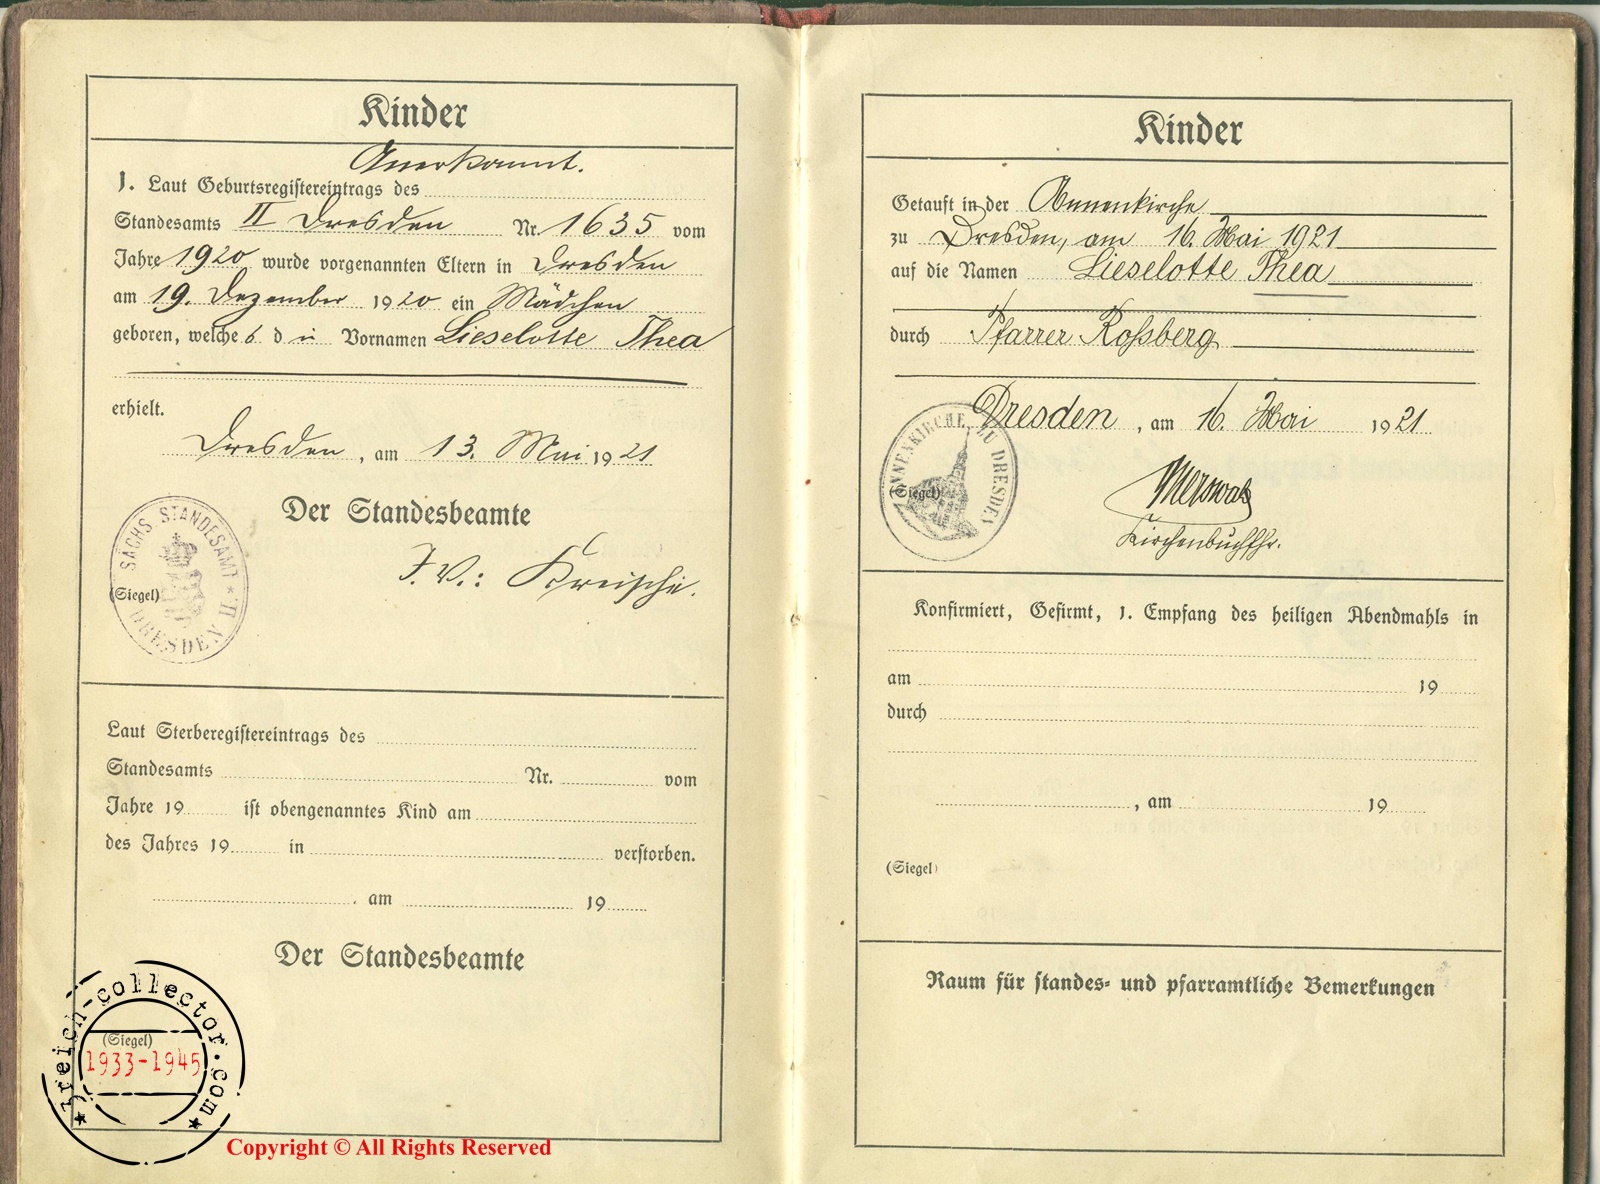 Kinder
Anerkannt.
1. Laut Geburtsregistereintrags des
Standesamts II Dresden Nr. 1635 vom
Jahre 1920 wurde vorgenannten Eltern in Dresden
am 19. Dezember 1920 ein Mädchen
geboren, welches d ie Vornamen Lieselotte Thea
erhielt.
Dresden, am 13. Mai 1921
Der Standesbeamte
SÄCHS. STANDESAMT * II. DRESDEN
(Siegel)
I. V.: Kreische.
Laut Sterberegistereintrags des
Standesamts Nr. vom
Jahre 19 ist obengenanntes Kind am
des Jahres 19 in verstorben.
, am 19
Der Standesbeamte
(Siegel)
3reich-collector.com
1933-1945
Copyright © All Rights Reserved
Kinder
Getauft in der Annenkirche
zu Dresden, am 16. Mai 1921
auf die Namen Lieselotte Thea
durch Pfarrer Roßberg
Dresden, am 16. Mai 1921
ANNENKIRCHE ZU DRESDEN
(Siegel)
Kirchenbuchfhr.
Konfirmiert, Gefirmt, 1. Empfang des heiligen Abendmahls in
am 19
durch
, am 19
(Siegel)
Raum für standes- und pfarramtliche Bemerkungen